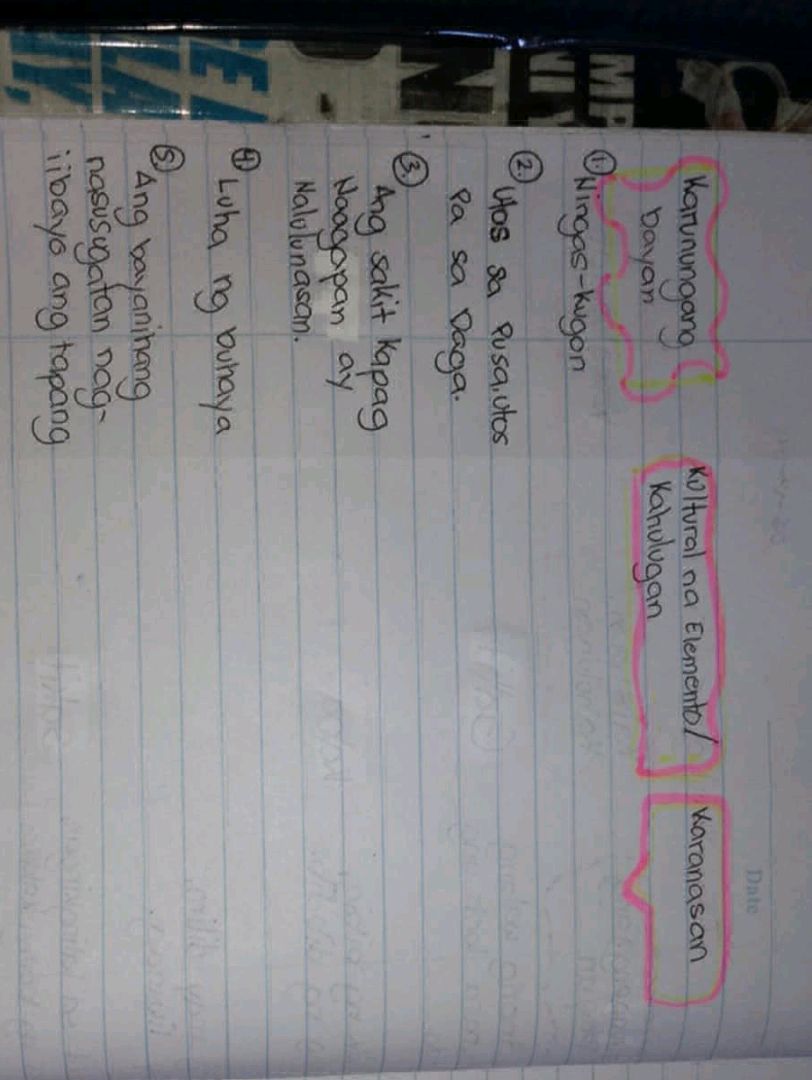 Date
Karunungang
bayan
Kultural na Elemento/
Kahulugan
Karanasan
1. Ningas-kugon
2. Utos sa Pusa, utos
Pa sa Daga.
3.
Ang sakit kapag
Naagapan ay
Nalulunasan.
4 Luha ng buhaya
5.
Ang bayanihang
nasusugatan nag-
iibayo ang tapang